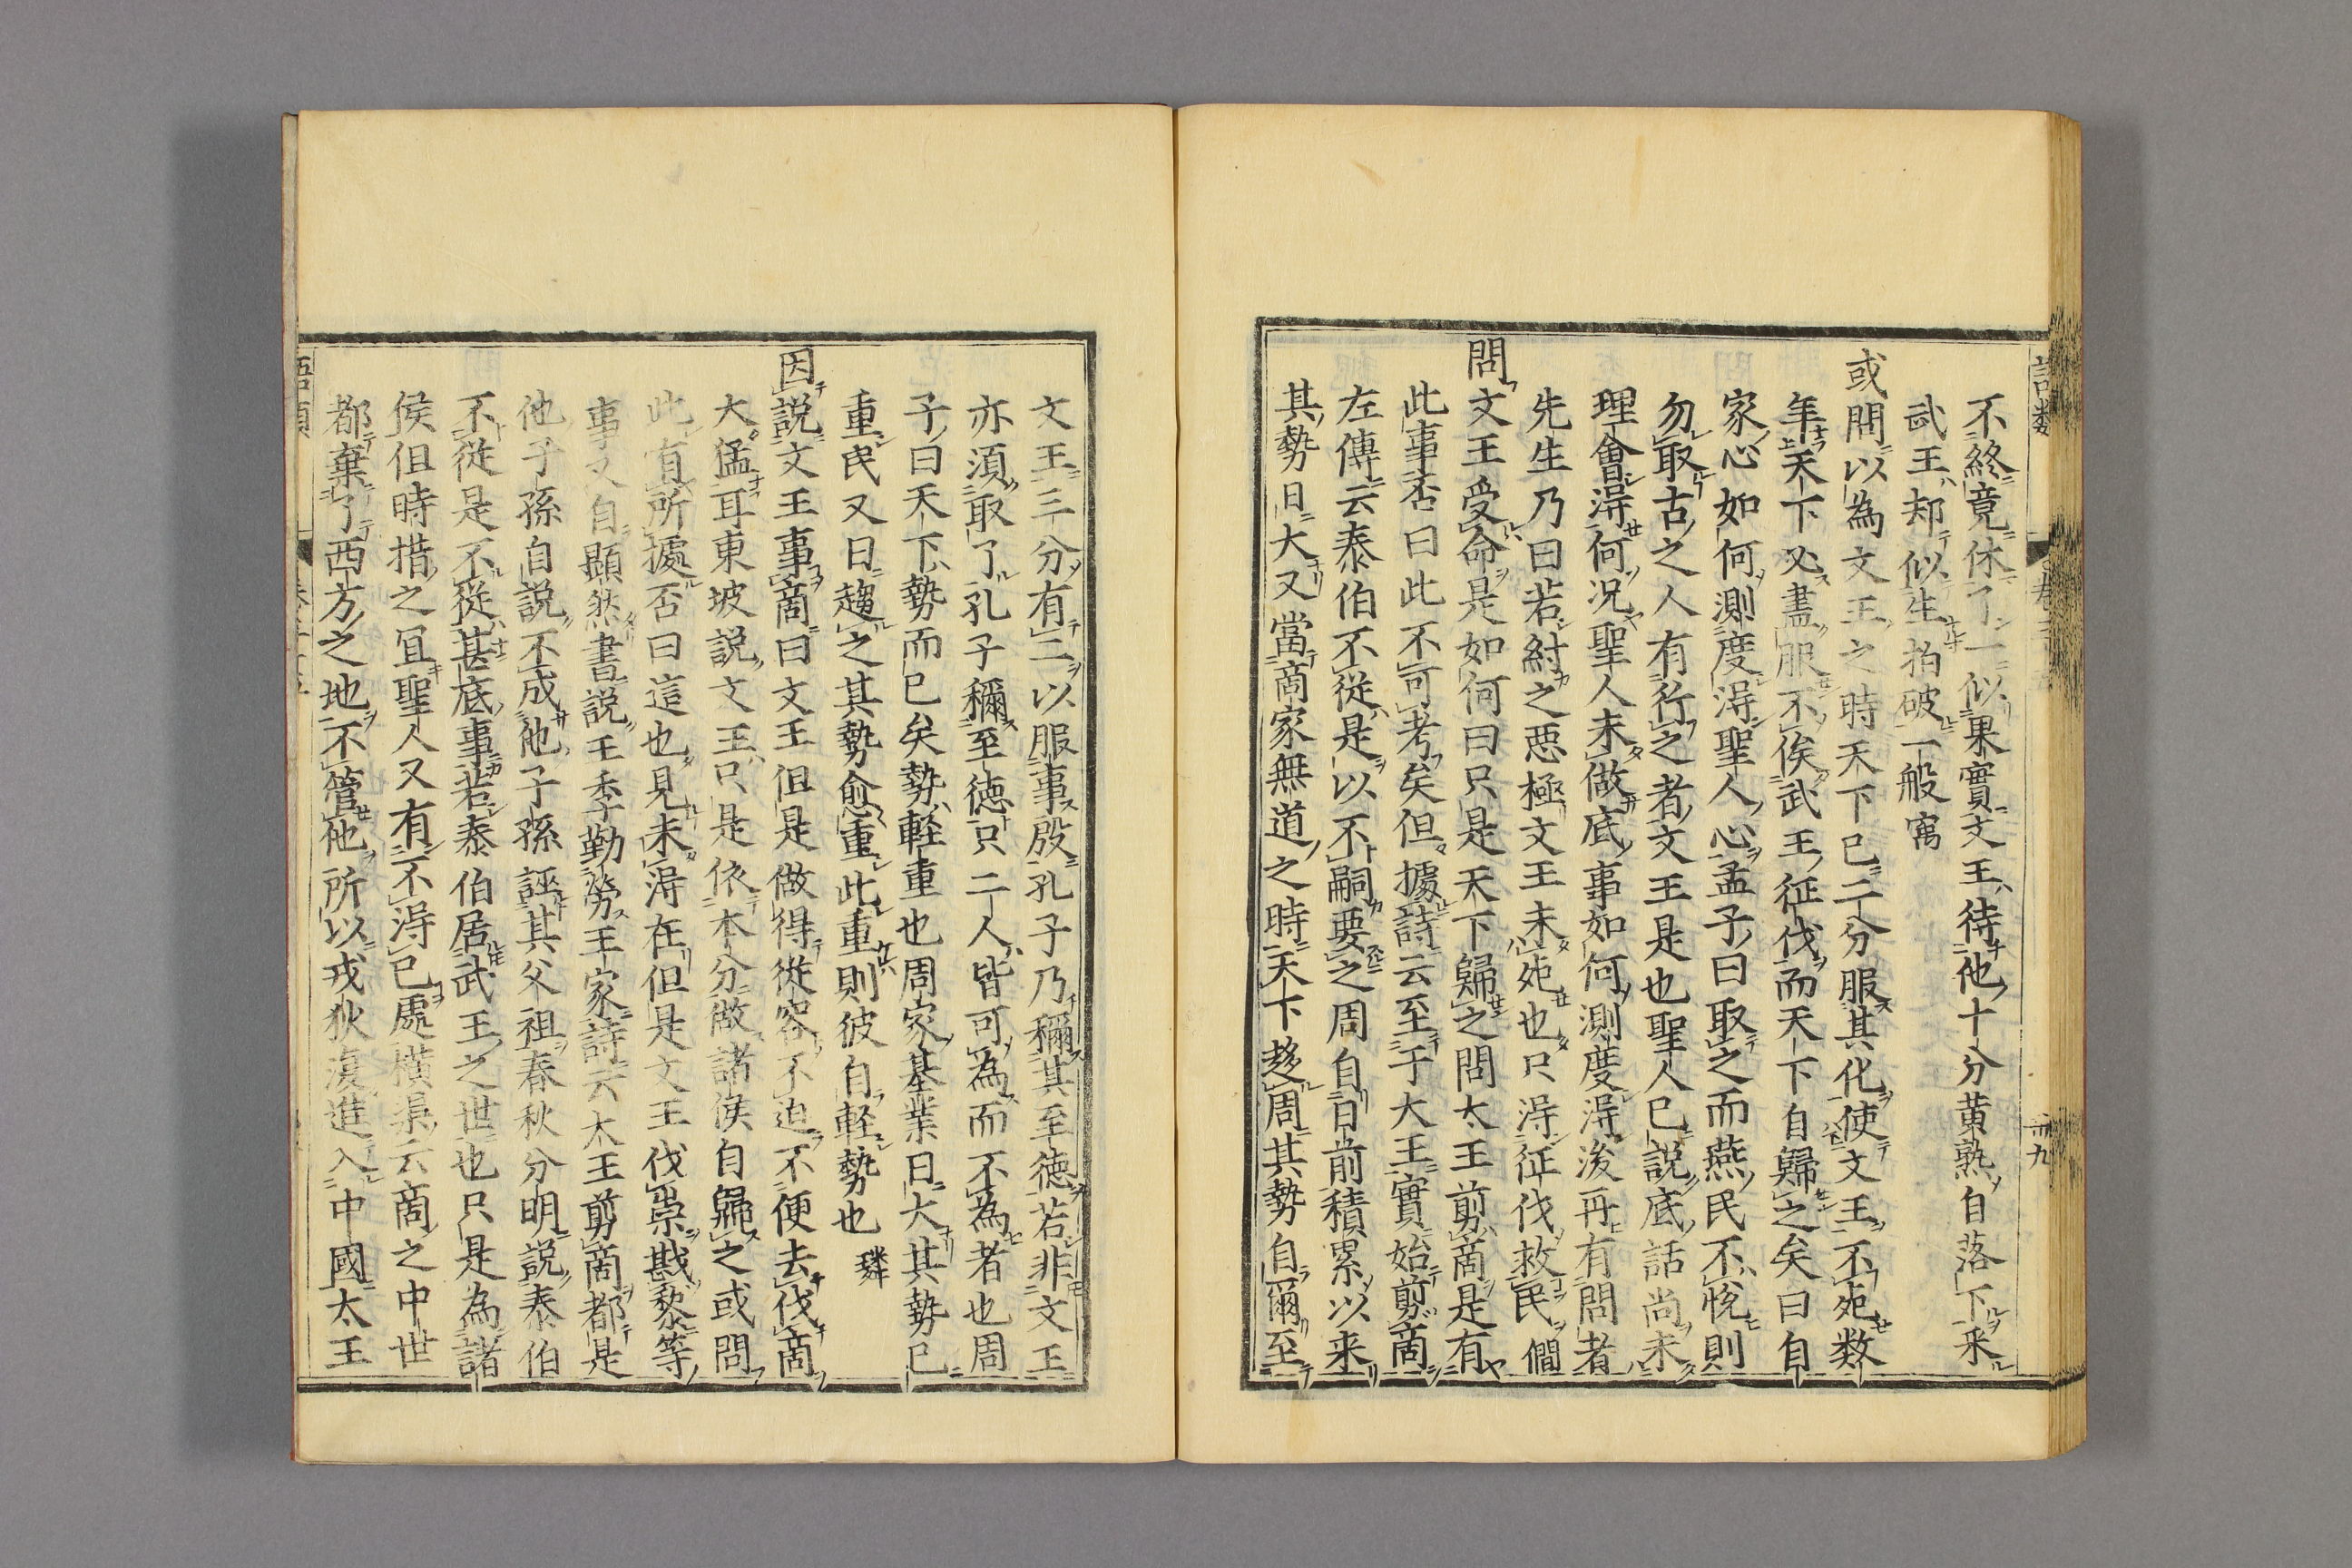 語類
卷三十五
卅九
不終竟休了一似果實文王待他十分黄熟自落下来
武王却似生拍破一般㝢
或問以為文王之時天下已二分服其化使文王不死数
年天下必盡服不俟武王征伐而天下自歸之矣曰自
家心如何測度淂聖人心孟子曰取之而燕民不悅則
勿取古之人有行之者文王是也聖人已說底話尚未
理會淂何况聖人未做底事如何測度淂後再有問者
先生乃曰若紂之惡極文王未死也只淂征伐救民僩
問文王受命是如何曰只是天下歸之問太王剪商是有
此事否曰此不可考矣但據詩云至于大王實始剪商
左傳云泰伯不從是以不嗣要之周自日前積累以来
其勢日大又當商家無道之時天下趍周其勢自爾至
文王三分有二以服事殷孔子乃稱其至徳若非文王
亦須取了孔子稱至徳只二人皆可為而不為者也周
子曰天下勢而已矣勢輕重也周家基業日大其勢已
重民又日趨之其勢愈重此重則彼自輕勢也 璘
因說文王事商曰文王但是做得從容不迫不便去伐商
大猛耳東坡說文王只是依本分做諸侯自歸之或問
此有所據否曰這也見未淂在但是文王伐崇戡黎等
事又自顯然書說王季勤勞王家詩云太王剪商都是
他子孫自說不成他子孫誣其父祖春秋分明説泰伯
不從是不從甚底事若泰伯居武王之世也只是為諸
侯但時措之宜聖人又有不淂已處横渠云商之中世
都棄了西方之地不管他所以戎狄復進入中國太王
語類